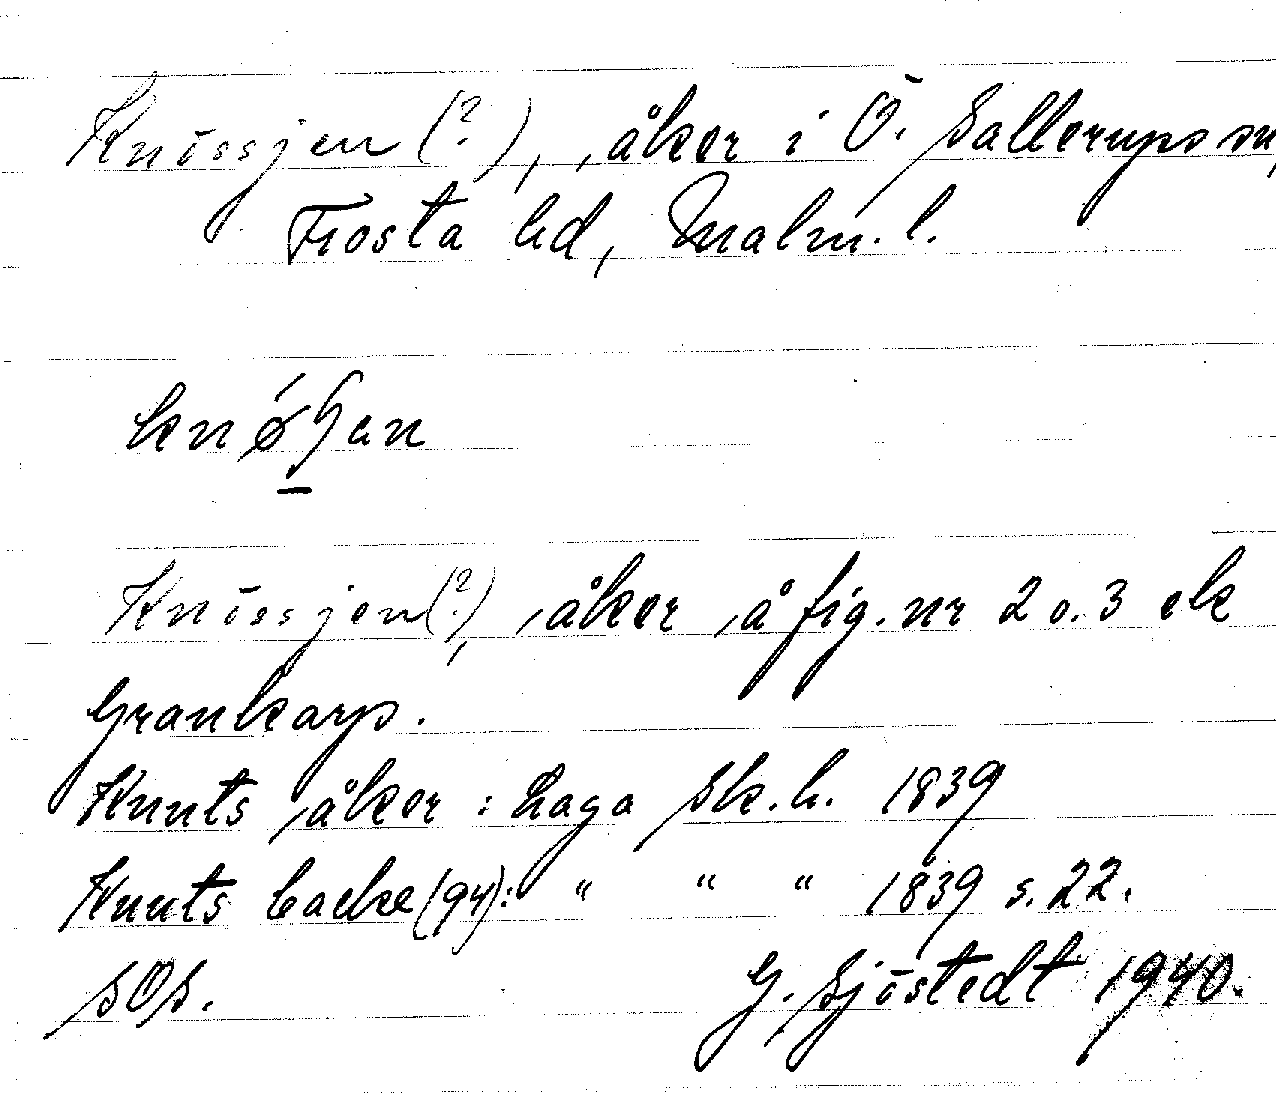 Knössjen (?), åker i Ö. Sallerups sn,
Frosta hd, Malm. l.
Knössjen (?), åker å fig. nr 2 o. 3 ek
Grankarp.
Knuts åker : Laga Sk. h. 1839
Knuts backe (94): " " " 1839 s. 22.
SOS.
G. Sjöstedt 1940.